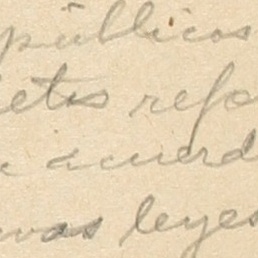 públicos
etos refo
acuerd
vas leyes